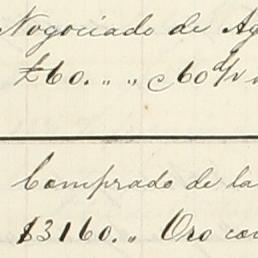 Nogociado de Ag
£60. " " c/ 60 d/v
Comprado de la
$3160. " Oro con